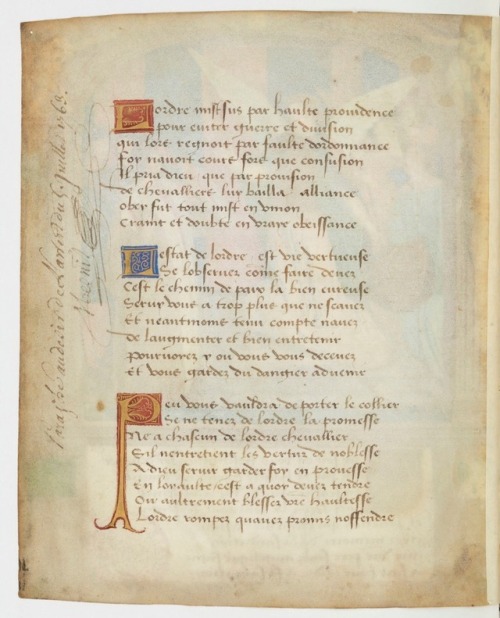 Lordre mist sus par haulte providence
pour eviter guerre et division
qui lors regnoit par faulte dordonnance
foy navoit court fors que confusion
Il pria dieu que par provision
de chevalliers luy bailla alliance
ober fut tout mist en union
Craint et doubte en vraye obeissance
Lestat de lordre est vie vertueuse
Se lobservez come faire devez
Cest le chemin de paix la bien eureuse
Servir vous a trop plus que ne scavez
Et neantmoins tenu compte navez
de laugmenter et bien entretenir
pourvoiez y ou vous vous decevez
Et vous gardez du dangier advenir
Peu vous vauldra de porter le collier
Se ne tenez de lordre la promesse
Ne a chascun de lordre chevallier
Sil nentretient les vertuz de noblesse
A dieu servir garder foy en prouesse
En loyaulte cest a quoy devez tendre
Ou aultrement blessez vre haultesse
Lordre rompez quavez promis noffendre